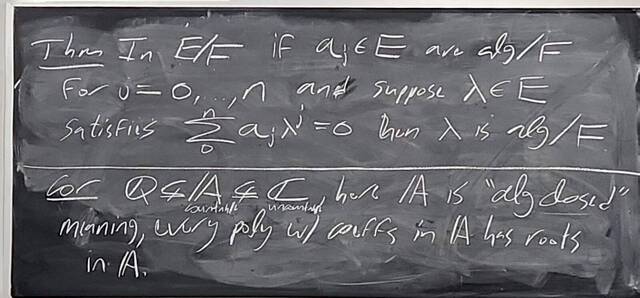 Thm In E/F if aⱼ ∈ E are alg/F
For j = 0, ..., n and suppose λ ∈ E
satisfies ∑₀ⁿ aⱼ λʲ = 0 then λ is alg/F
Cor Q ⊊ A ⊊ C here A is "alg closed"
countable uncountable
meaning, every poly w/ coeffs in A has roots
in A.